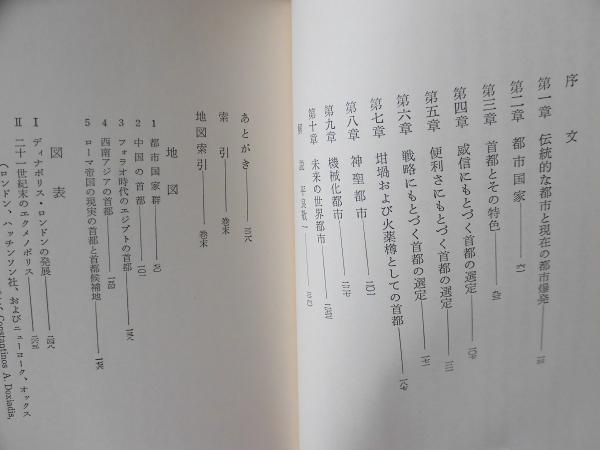 序文
第一章 伝統的な都市と現在の都市爆発
第二章 都市国家
第三章 首都とその特色
第四章 威信にもとづく首都の選定
第五章 便利さにもとづく首都の選定
第六章 戦略にもとづく首都の選定
第七章 坩堝および火薬樽としての首都
第八章 神聖都市
第九章 機械化都市
第十章 未来の世界都市
解説 平良敬一
あとがき
索引 巻末
地図索引 巻末
地図
1 都市国家群
2 中国の首都
3 ファラオ時代のエジプトの首都
4 西南アジアの首都
5 ローマ帝国の現実の首都と首都候補地
図表
I ディナポリス・ロンドンの発展
II 二十一世紀末のエクメノポリス
(ロンドン、ハッチンソン社、およびニューヨーク、オックス
Constantinos A. Doxiadis,